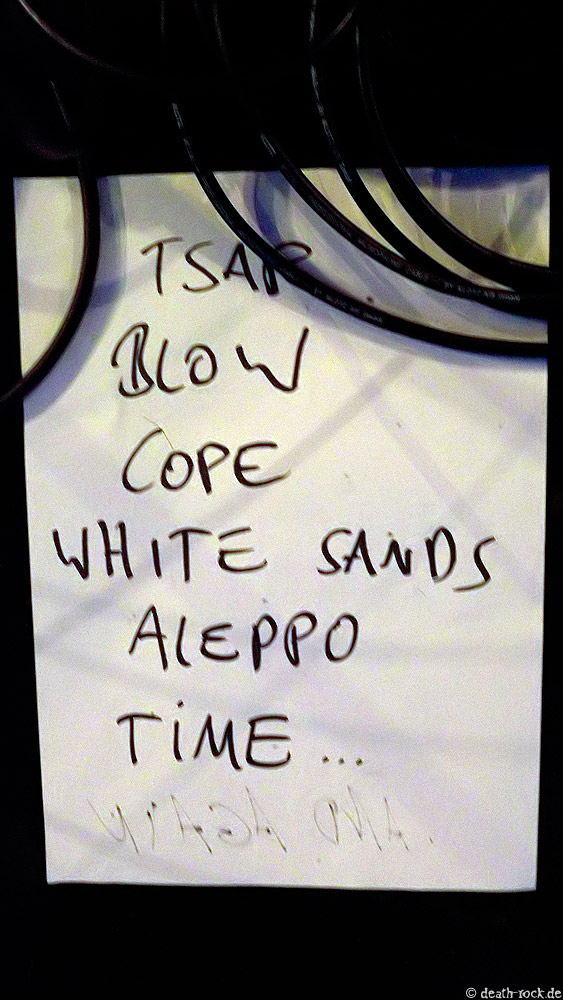 TSAR
BLOW
COPE
WHITE SANDS
ALEPPO
TIME...
© death-rock.de